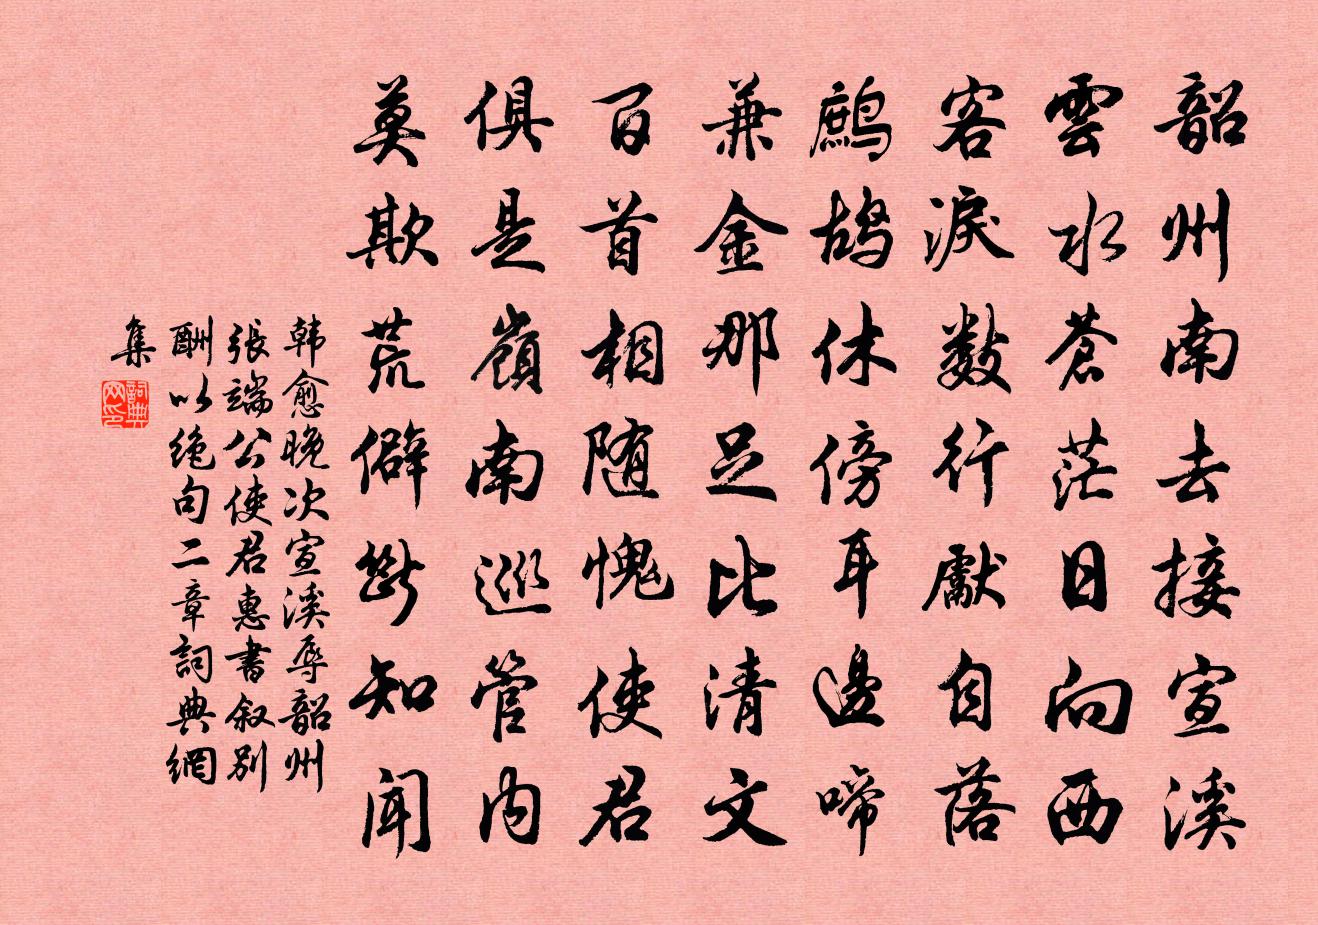 韶州南去接宣溪
雲水蒼茫日向西
客淚數行獻自落
鷓鴣休傍耳邊啼
兼金那足比清文
百首相隨愧使君
俱是嶺南巡管内
莫欺荒僻斷知聞
韩愈晚次宣溪辱韶州
張端公使君惠書叙别
酬以絶句二章詞典網
集
詞典网印